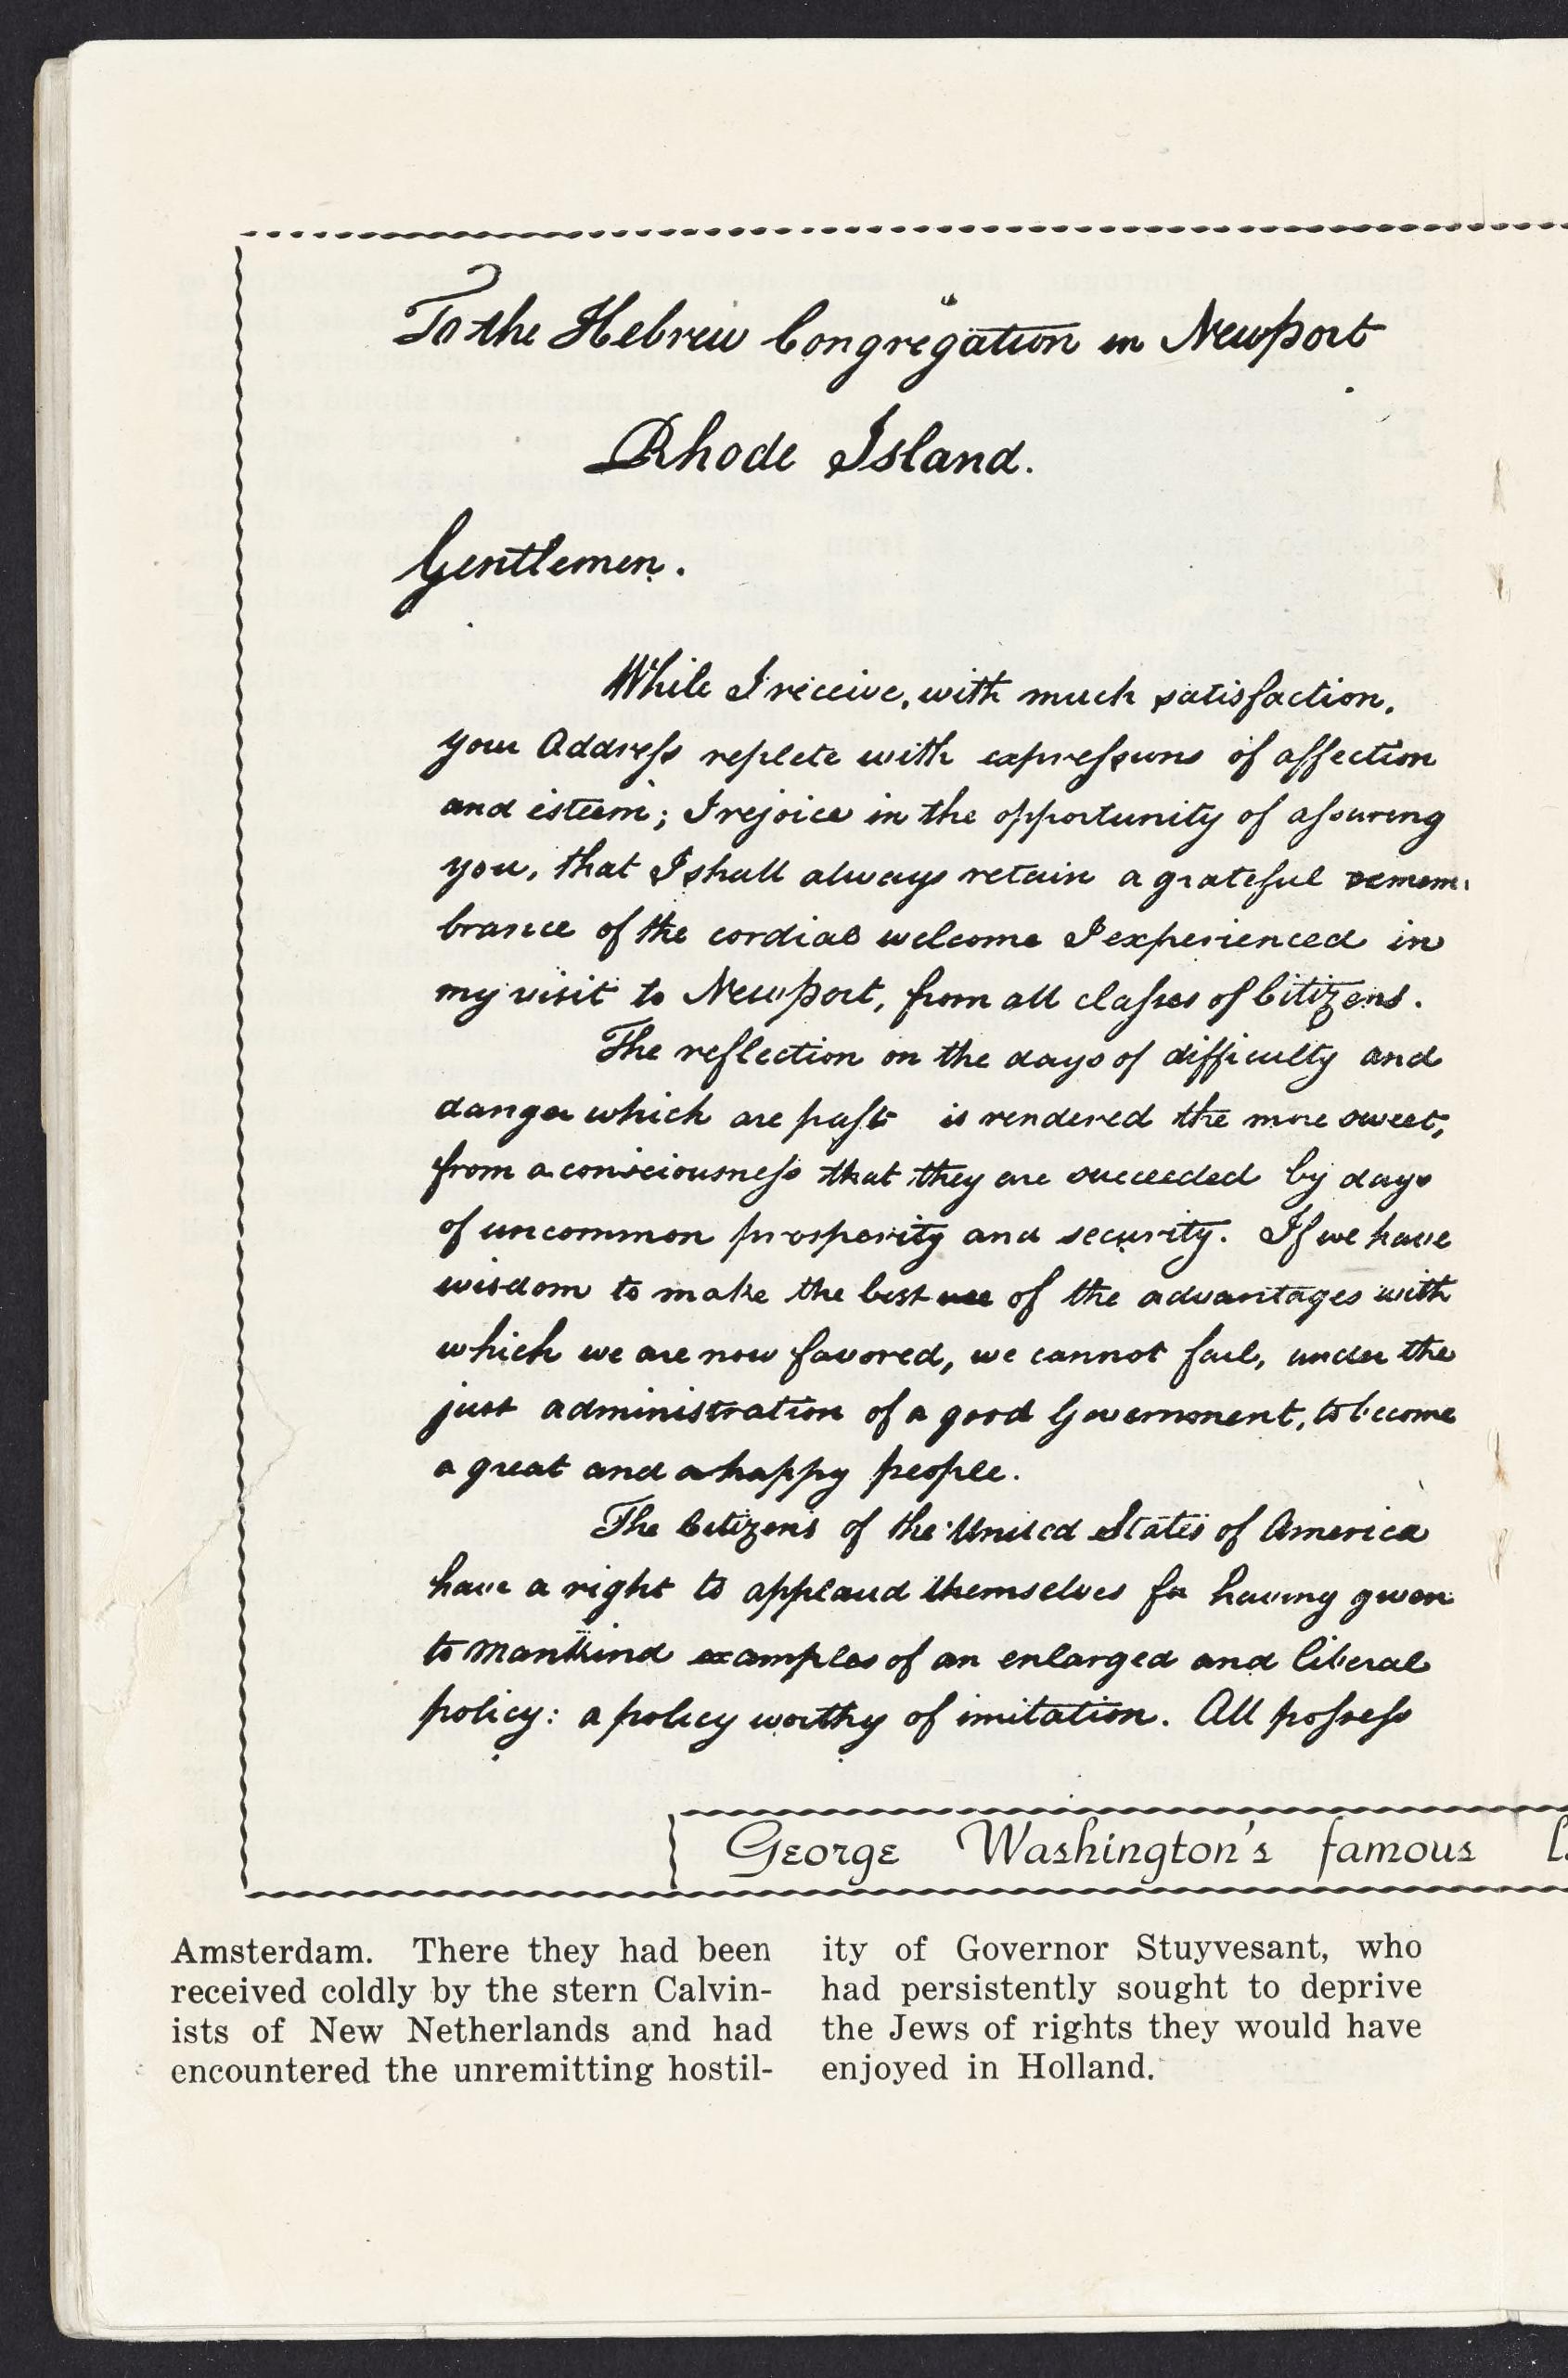 To the Hebrew Congregation in Newport
Rhode Island.
Gentlemen.
While I receive, with much satisfaction,
your Address replete with expressions of affection
and esteem; I rejoice in the opportunity of assuring
you, that I shall always retain a grateful remem-
brance of the cordial welcome I experienced in
my visit to Newport, from all classes of Citizens.
The reflection on the days of difficulty and
danger which are past is rendered the more sweet,
from a consciousness that they are succeeded by days
of uncommon prosperity and security. If we have
wisdom to make the best use of the advantages with
which we are now favored, we cannot fail, under the
just administration of a good Government, to become
a great and a happy people.
The Citizens of the United States of America
have a right to applaud themselves for having given
to mankind examples of an enlarged and liberal
policy: a policy worthy of imitation. All possess
George Washington's famous
Amsterdam. There they had been
received coldly by the stern Calvin-
ists of New Netherlands and had
encountered the unremitting hostil-
ity of Governor Stuyvesant, who
had persistently sought to deprive
the Jews of rights they would have
enjoyed in Holland.